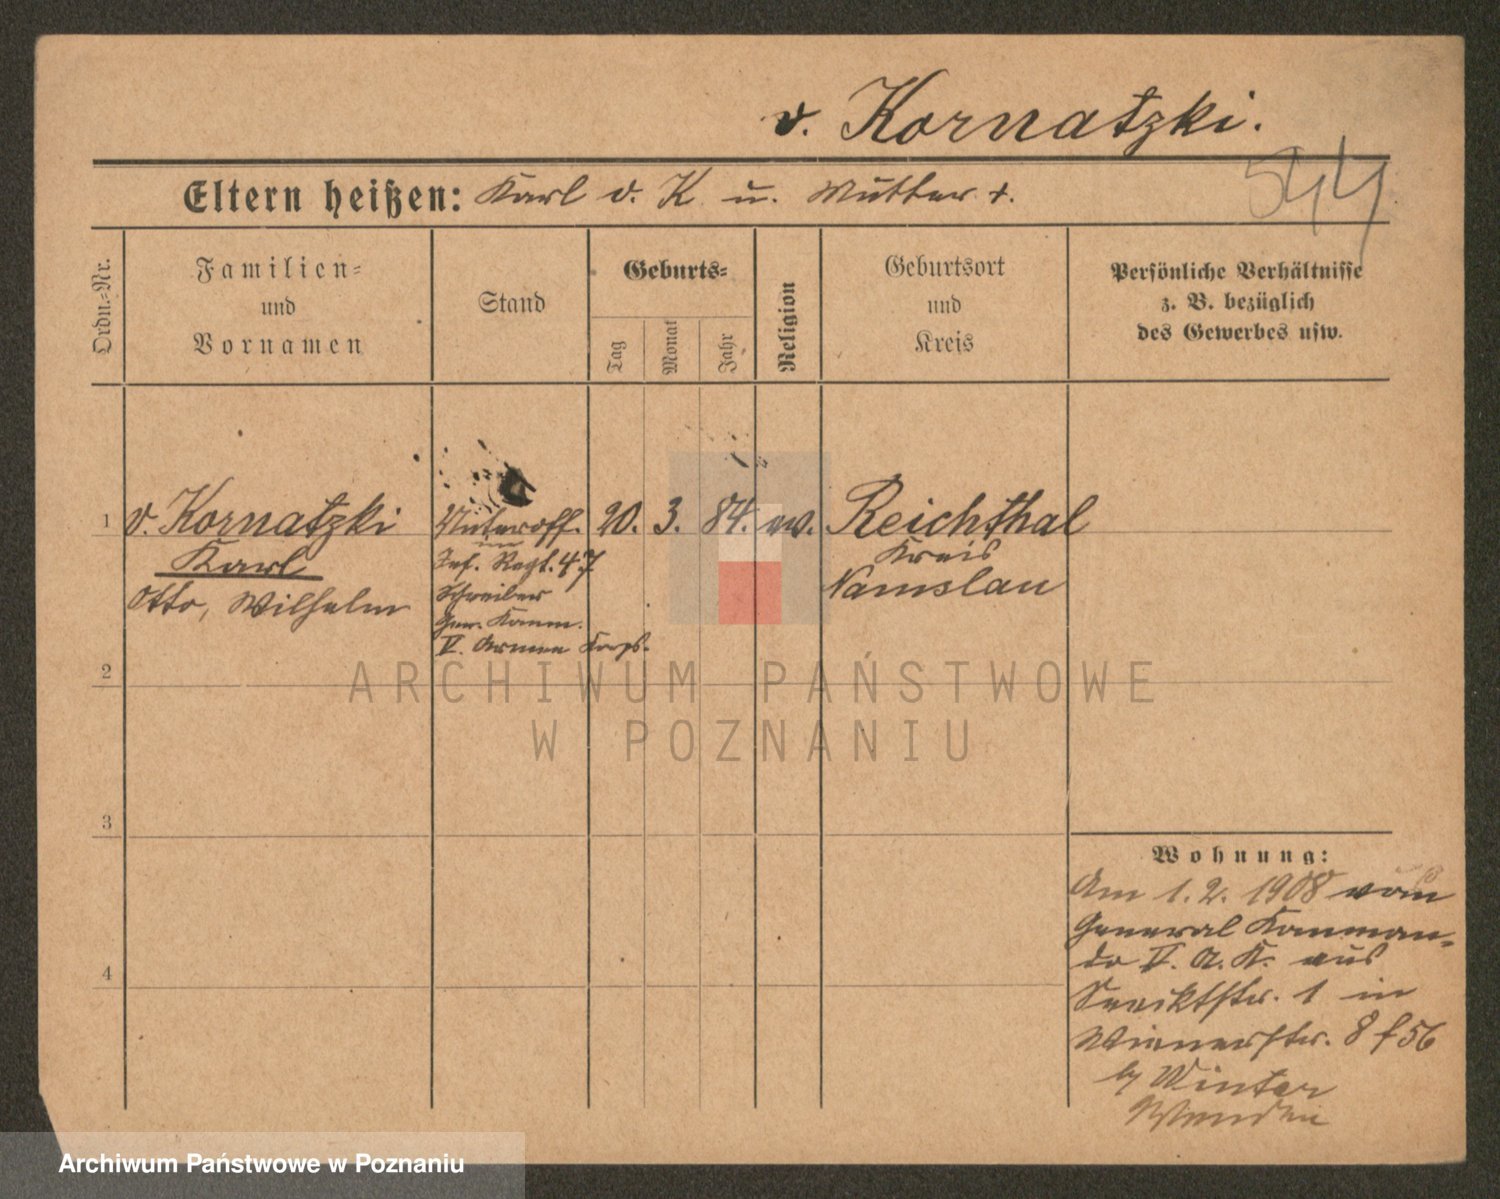 v. Kornatzki.
544
Eltern heißen: Karl v. K u. Mutter +.
Ordn.-Nr.
Familien-
und
Vornamen
Stand
Geburts-
Tag
Monat
Jahr
Religion
Geburtsort
und
Kreis
Persönliche Verhältnisse
z. B. bezüglich
des Gewerbes usw.
1 v. Kornatzki Unteroff. 20. 3. 84. ev. Reichthal
Karl
Otto, Wilhelm
im
Inf. Regt. 47
Schreiber
Gen. Komm.
V. Armee Korps.
Kreis
Namslau
2
3
4
Wohnung:
Am 1. 2. 1908 vom
General Komman-
do V. A. K. aus
1 in
Wienerstr. 8 f 56
by Winter
ARCHIWUM PAŃSTWOWE
W POZNANIU
Archiwum Państwowe w Poznaniu